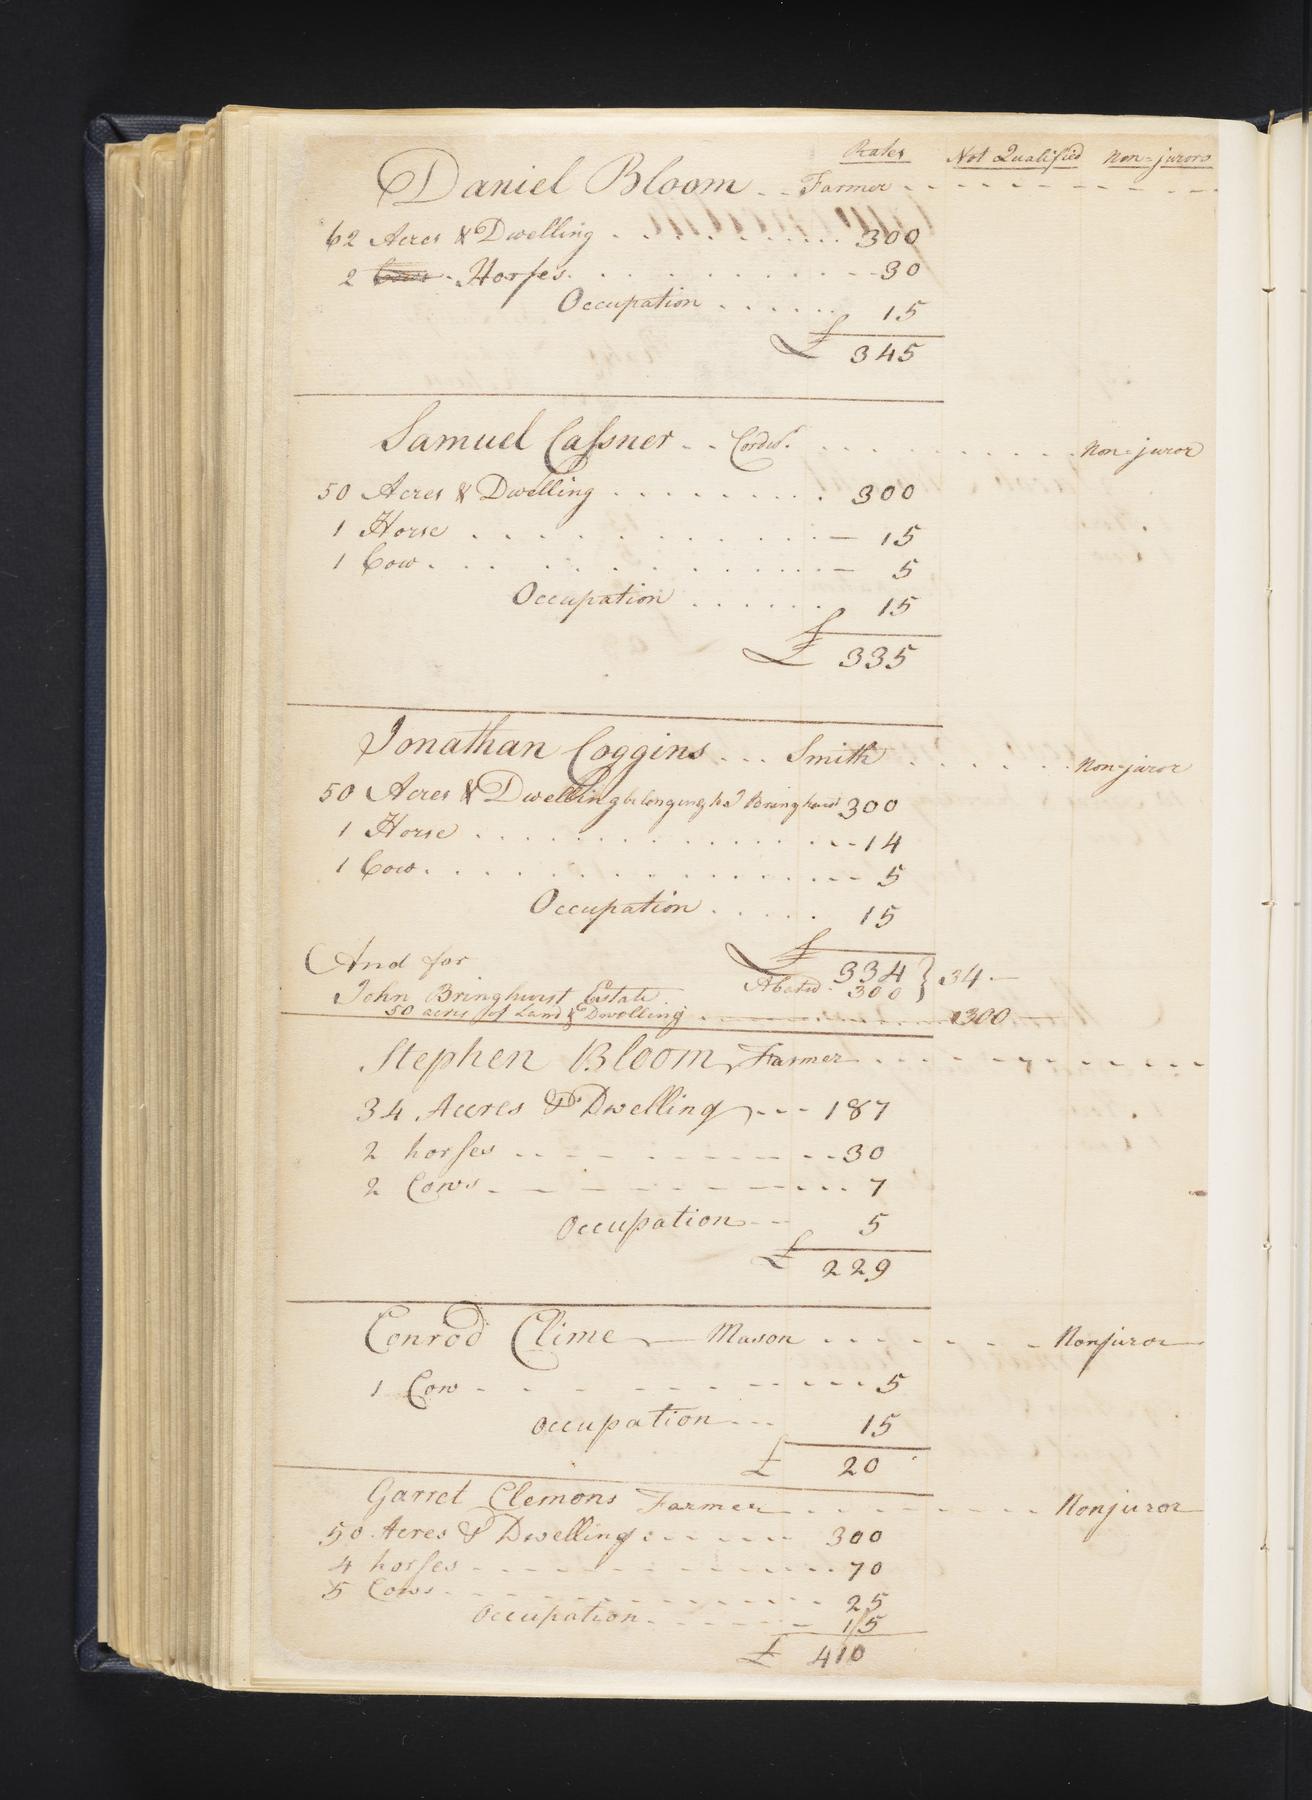 Rates Not Qualified Non-jurors
Daniel Bloom .. Farmer
62 Acres & Dwelling 300
2 Cows - Horses 30
Occupation 15
£ 345
Samuel Cassner .. Cordwr. Non-juror
50 Acres & Dwelling 300
1 Horse 15
1 Cow 5
Occupation 15
£ 335
Jonathan Coggins ... Smith Non-juror
50 Acres & Dwelling belonging to J Bringhurst 300
1 Horse 14
1 Cow 5
Occupation 15
£ 334 } 34 -
And for Abated. 300
John Bringhurst Estate
50 acres of Land & Dwelling 300
Stephen Bloom, Farmer
34 Acres & Dwelling 187
2 horses 30
2 Cows 7
Occupation 5
£ 229
Conrod Clime Mason Nonjuror
1 Cow 5
Occupation 15
£ 20
Garret Clemons Farmer Nonjuror
50 Acres & Dwelling 300
4 horses 70
5 Cows 25
Occupation 15
£ 410